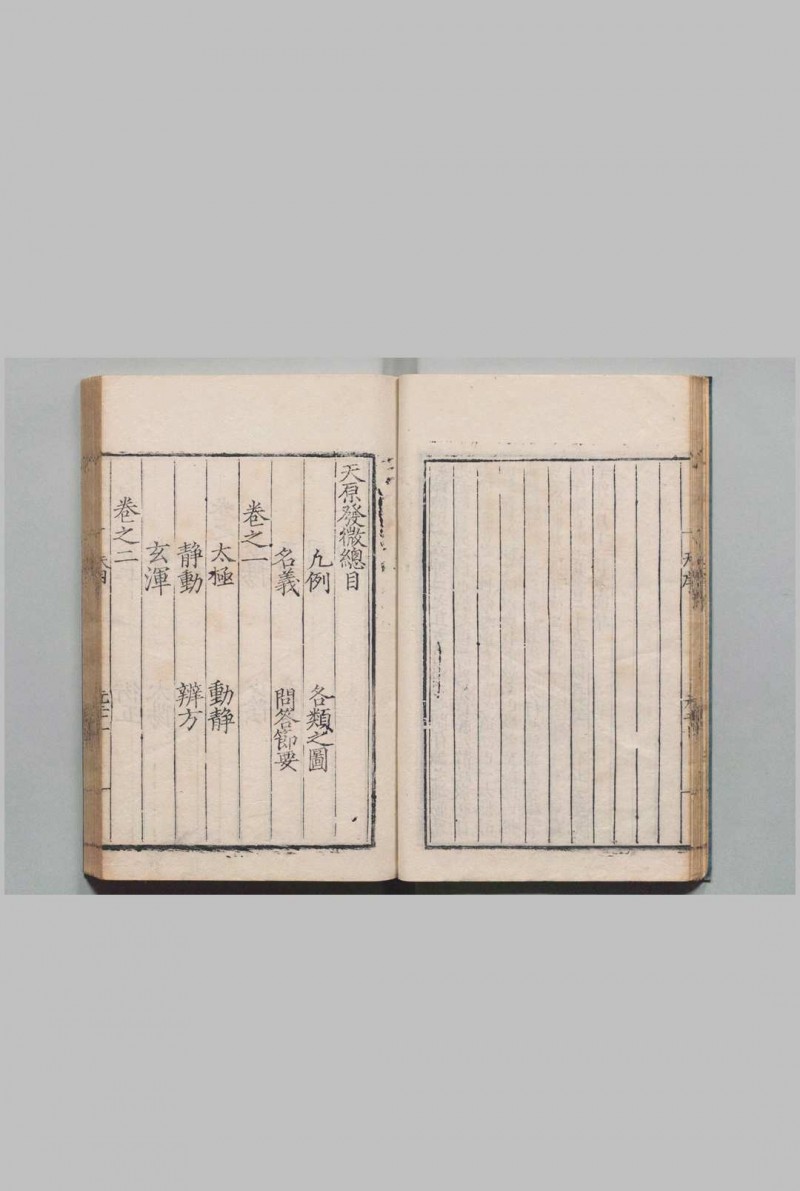 天原發微總目
凡例 各類之圖
名義 問答節要
卷之一
太極 動靜
靜動 辨方
玄渾
卷之二